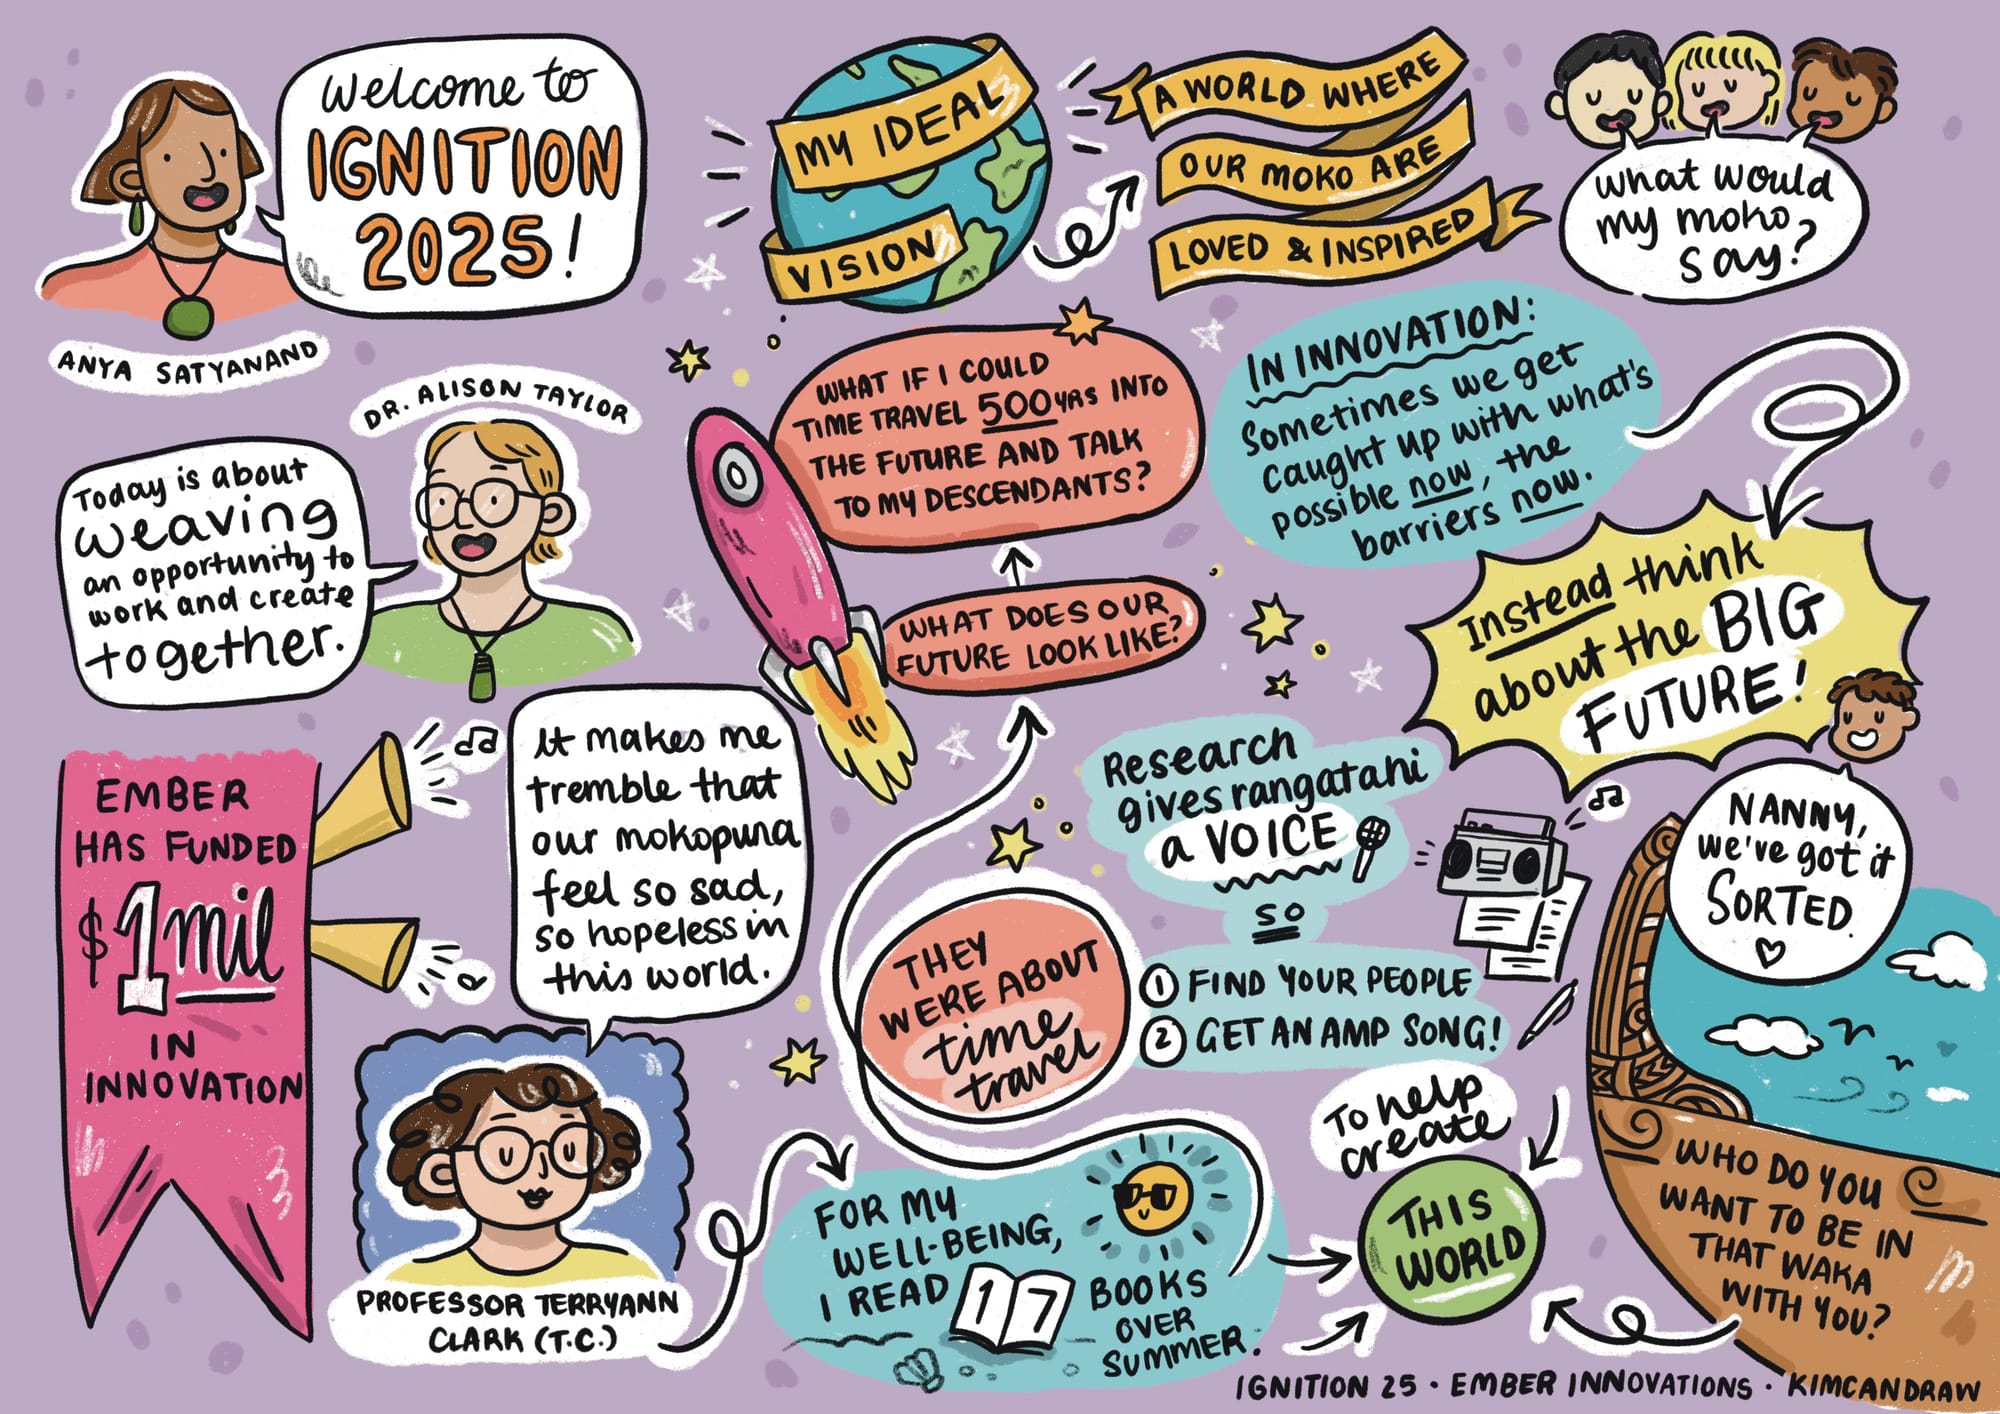 Welcome to
IGNITION
2025!
ANYA SATYANAND
DR. ALISON TAYLOR
Today is about
weaving
an opportunity to
work and create
together.
EMBER
HAS FUNDED
$1mil
IN
INNOVATION
It makes me
tremble that
our mokopuna
feel so sad,
so hopeless in
this world.
PROFESSOR TERRYANN
CLARK (T.C.)
MY IDEAL
VISION
A WORLD WHERE
OUR MOKO ARE
LOVED & INSPIRED
what would
my moko
say?
WHAT IF I COULD
TIME TRAVEL 500YRS INTO
THE FUTURE AND TALK
TO MY DESCENDANTS?
WHAT DOES OUR
FUTURE LOOK LIKE?
THEY
WERE ABOUT
time
travel
FOR MY
WELL-BEING,
I READ 17 BOOKS
OVER
SUMMER.
IN INNOVATION:
Sometimes we get
caught up with what's
possible now, the
barriers now.
Instead think
about the BIG
FUTURE!
NANNY,
we've got it
SORTED.
Research
gives rangatahi
a VOICE
SO
1 FIND YOUR PEOPLE
2 GET AN AMP SONG!
To help
create
THIS
WORLD
WHO DO YOU
WANT TO BE IN
THAT WAKA
WITH YOU?
IGNITION 25 · EMBER INNOVATIONS · KIMCANDRAW